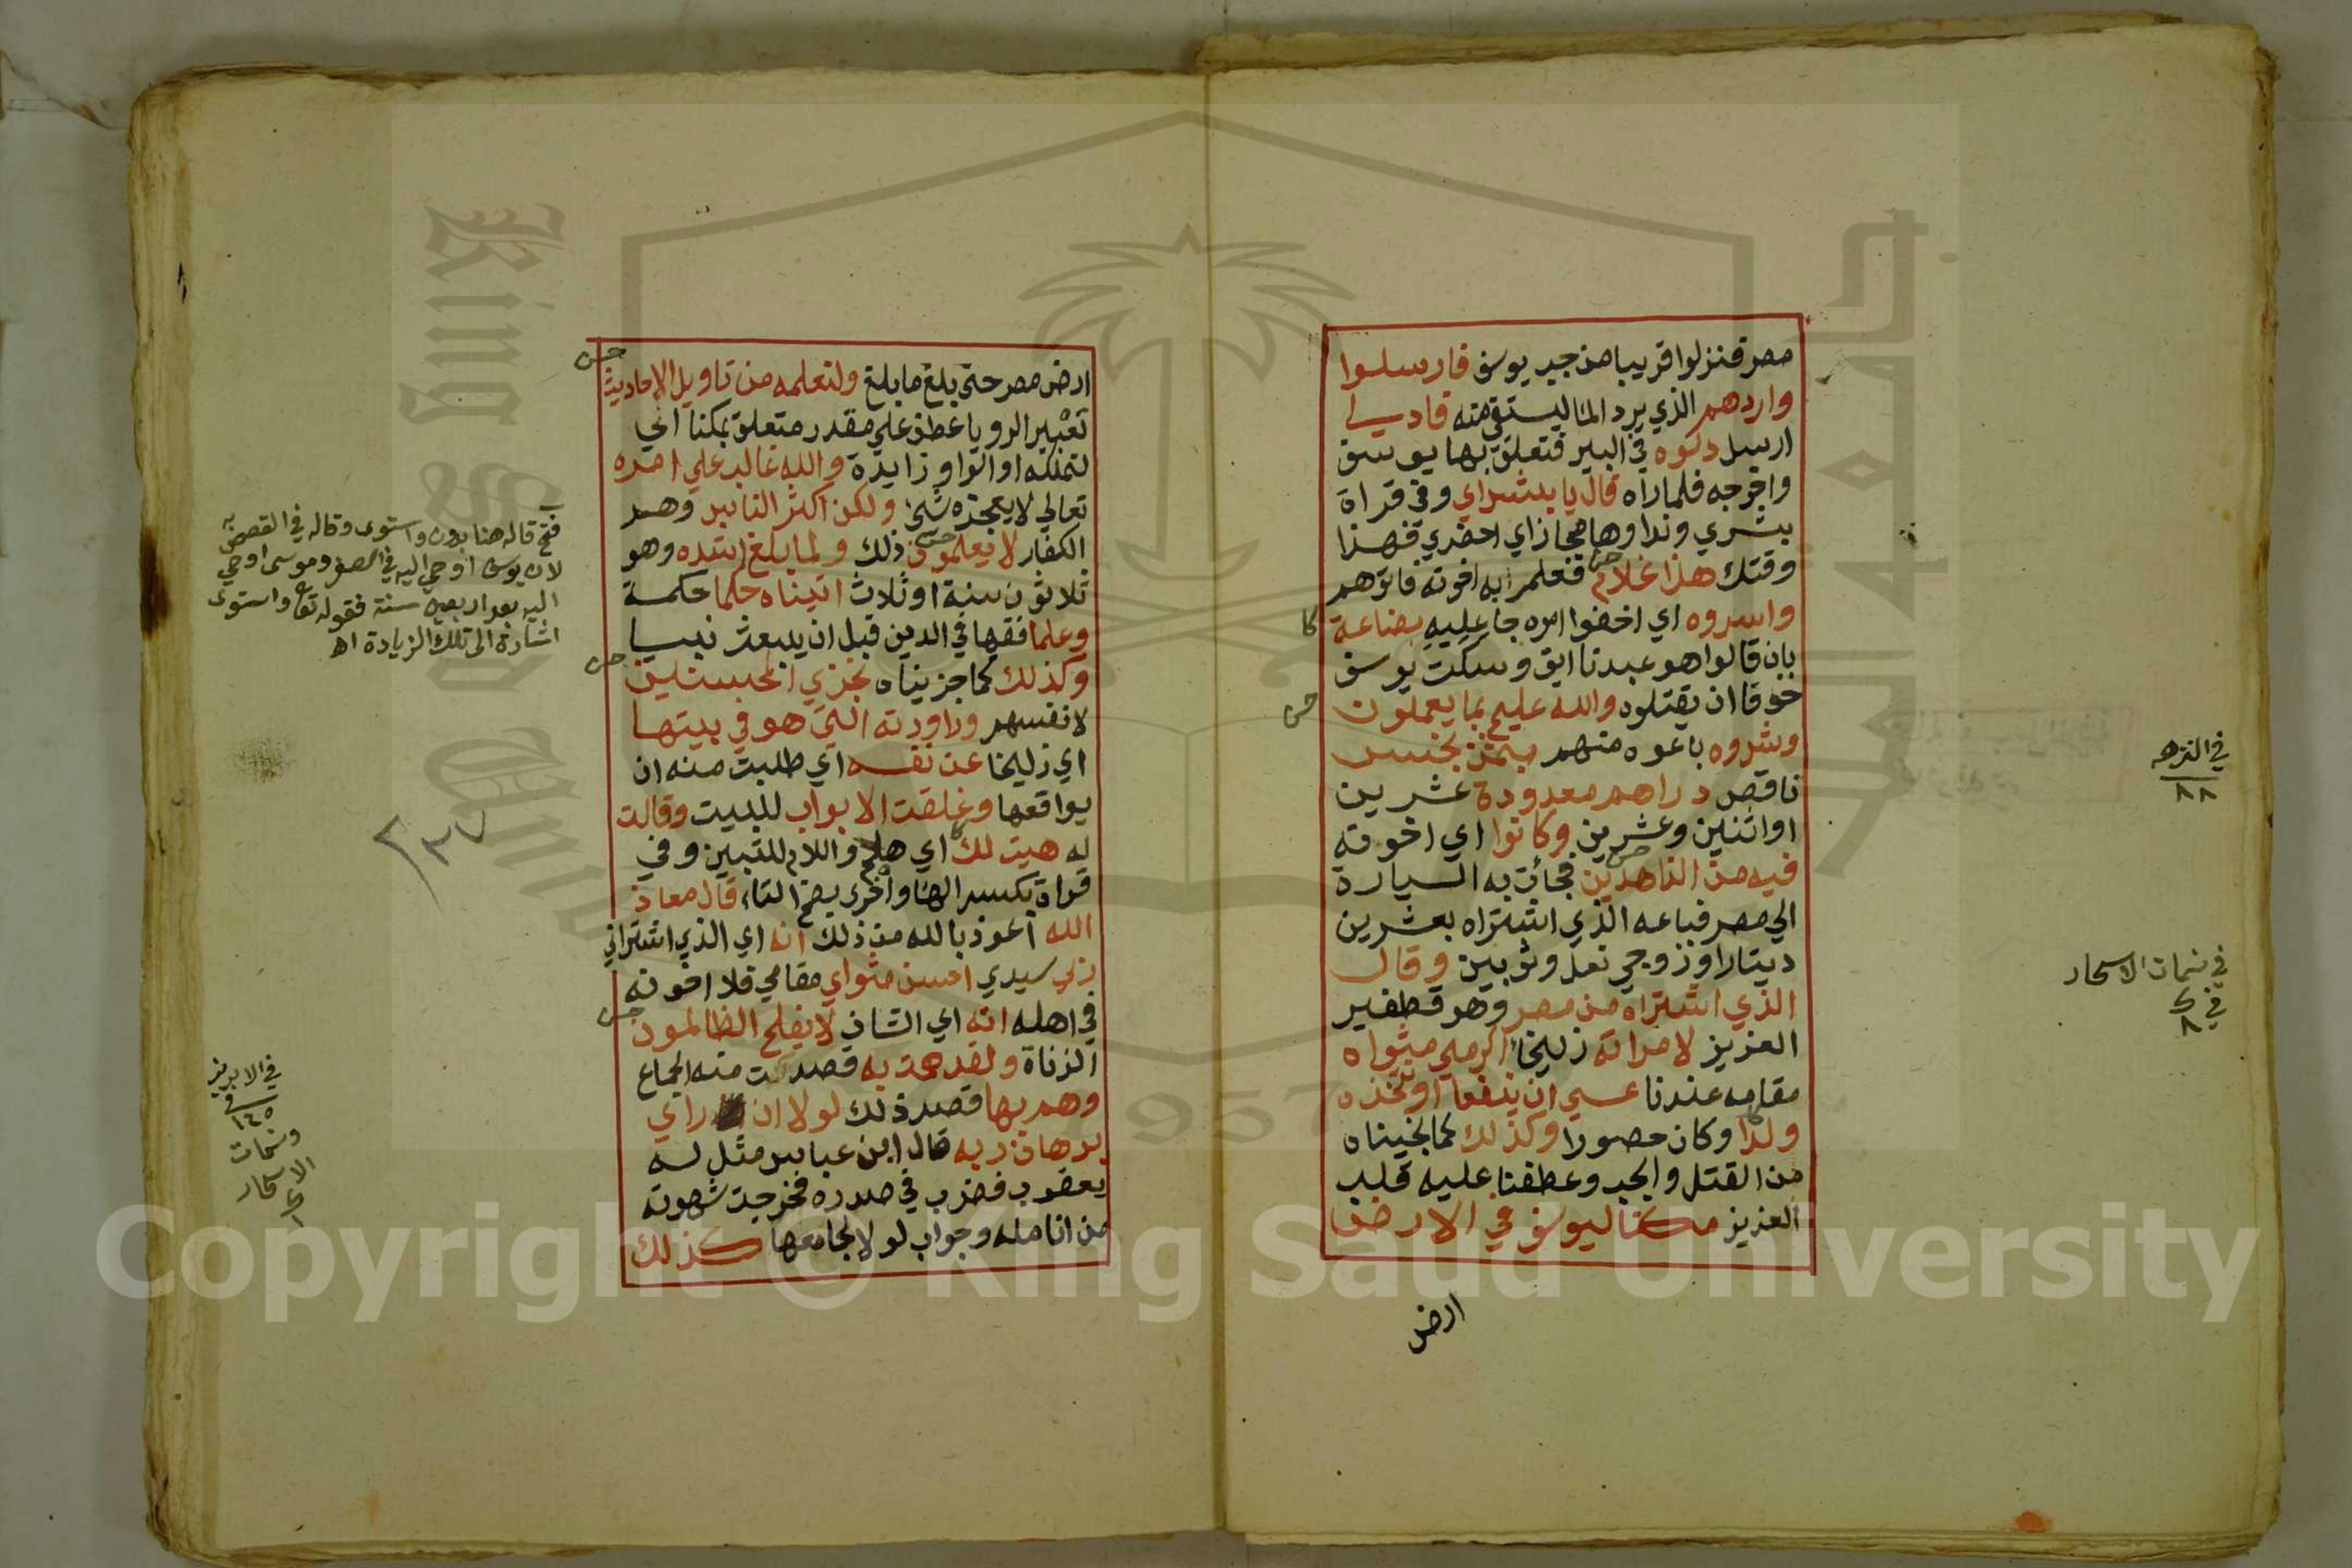 مصر فنزلوا قريبا من جب يوسف فارسلوا
واردهم الذي يرد الما ليستقي منه فادلي
ارسل دلوه في البير فتعلق بها يوسف
واخرجه فلما راه قال يا بشراي وفي قراة
بشري ونداوها مجاز اي احضري فهذا
وقتك هذا غلام فعلم به اخوته فاتوهم
واسروه اي اخفوا امره جاعليه بضاعة
بان قالوا هو عبدنا ابق وسكت يوسف
خوفا ان يقتلوه والله عليم بما يعملون
وشروه باعوه منهم بثمن بخس
ناقص دراهم معدودة عشرين
او اثنين وعشرين وكانوا اي اخوته
فيه من الزاهدين فجأت به السيارة
الي مصر فباعه الذي اشتراه بعشرين
دينارا وزوجي نعل وثوبين وقال
الذي اشتراه من مصر وهو قطفير
العزيز لامراته زليخا اكرمي مثواه
مقامه عندنا عسي ان ينفعنا او نتخذه
ولدا وكان حصورا وكذلك كما نجيناه
من القتل والجب وعطفنا عليه قلب
العزيز مكنا ليوسف في الارض
ارض
في النزهه
٨٨
في نسمات الاسحار
في
كا
حس
حس
ارض مصر حتي بلغ ما بلغ ولنعلمه من تاويل الاحاديث
تعبير الرويا عطف علي مقدر متعلق بمكنا اي
لنملكه او الواو زايدة والله غالب علي امره
تعالي لا يعجزه شي ولكن اكثر الناس وهم
الكفار لا يعلمون ذلك ولما بلغ اشده وهو
ثلاثون سنة او ثلاث اتيناه حكما حكمة
وعلما فقها في الدين قبل ان يبعث نبيا
وكذلك كما جزيناه نجزي المحسنين
لانفسهم وراودته التي هو في بيتها
اي زليخا عن نفسه اي طلبت منه ان
يواقعها وغلقت الابواب للبيت وقالت
له هيت لك اي هلم واللام للتبيين وفي
قراة بكسر الها واخرى بضم التاء قال معاذ
الله اعوذ بالله من ذلك انه اي الذي اشتراني
ربي سيدي احسن مثواي مقامي فلا اخونه
في اهله انه اي الشان لا يفلح الظالمون
الزناة ولقد همت به قصدت منه الجماع
وهم بها قصد ذلك لولا ان راي
برهان ربه قال ابن عباس مثل له
يعقوب فضرب في صدره فخرجت شهوته
من انامله وجواب لولا لجامعها كذلك
حس
فتح قاله هنا بدون واستوى وقاله في القصص به
لان يوسف اوحي اليه في الصغر وموسى اوحي
اليه بعد اربعين سنة فقوله تعا واستوى
اشارة الى تلك الزيادة اه
٢٣٧
في الابريز
١٤٥
ونسمات
الاسحار
Copyright © King Saud University
1957